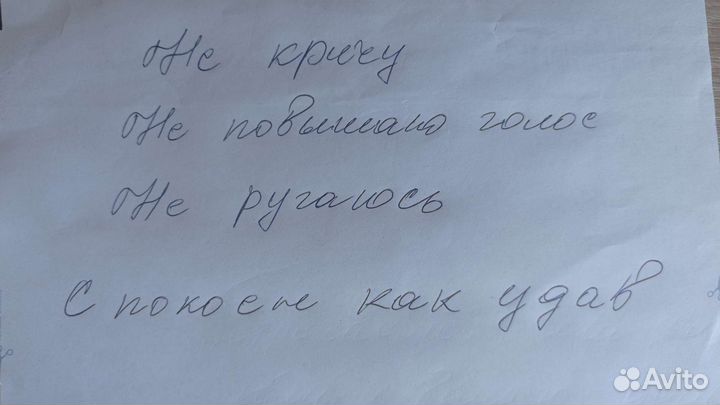 Не кричу
Не повышаю голос
Не ругаюсь
Спокоен как удав
Avito